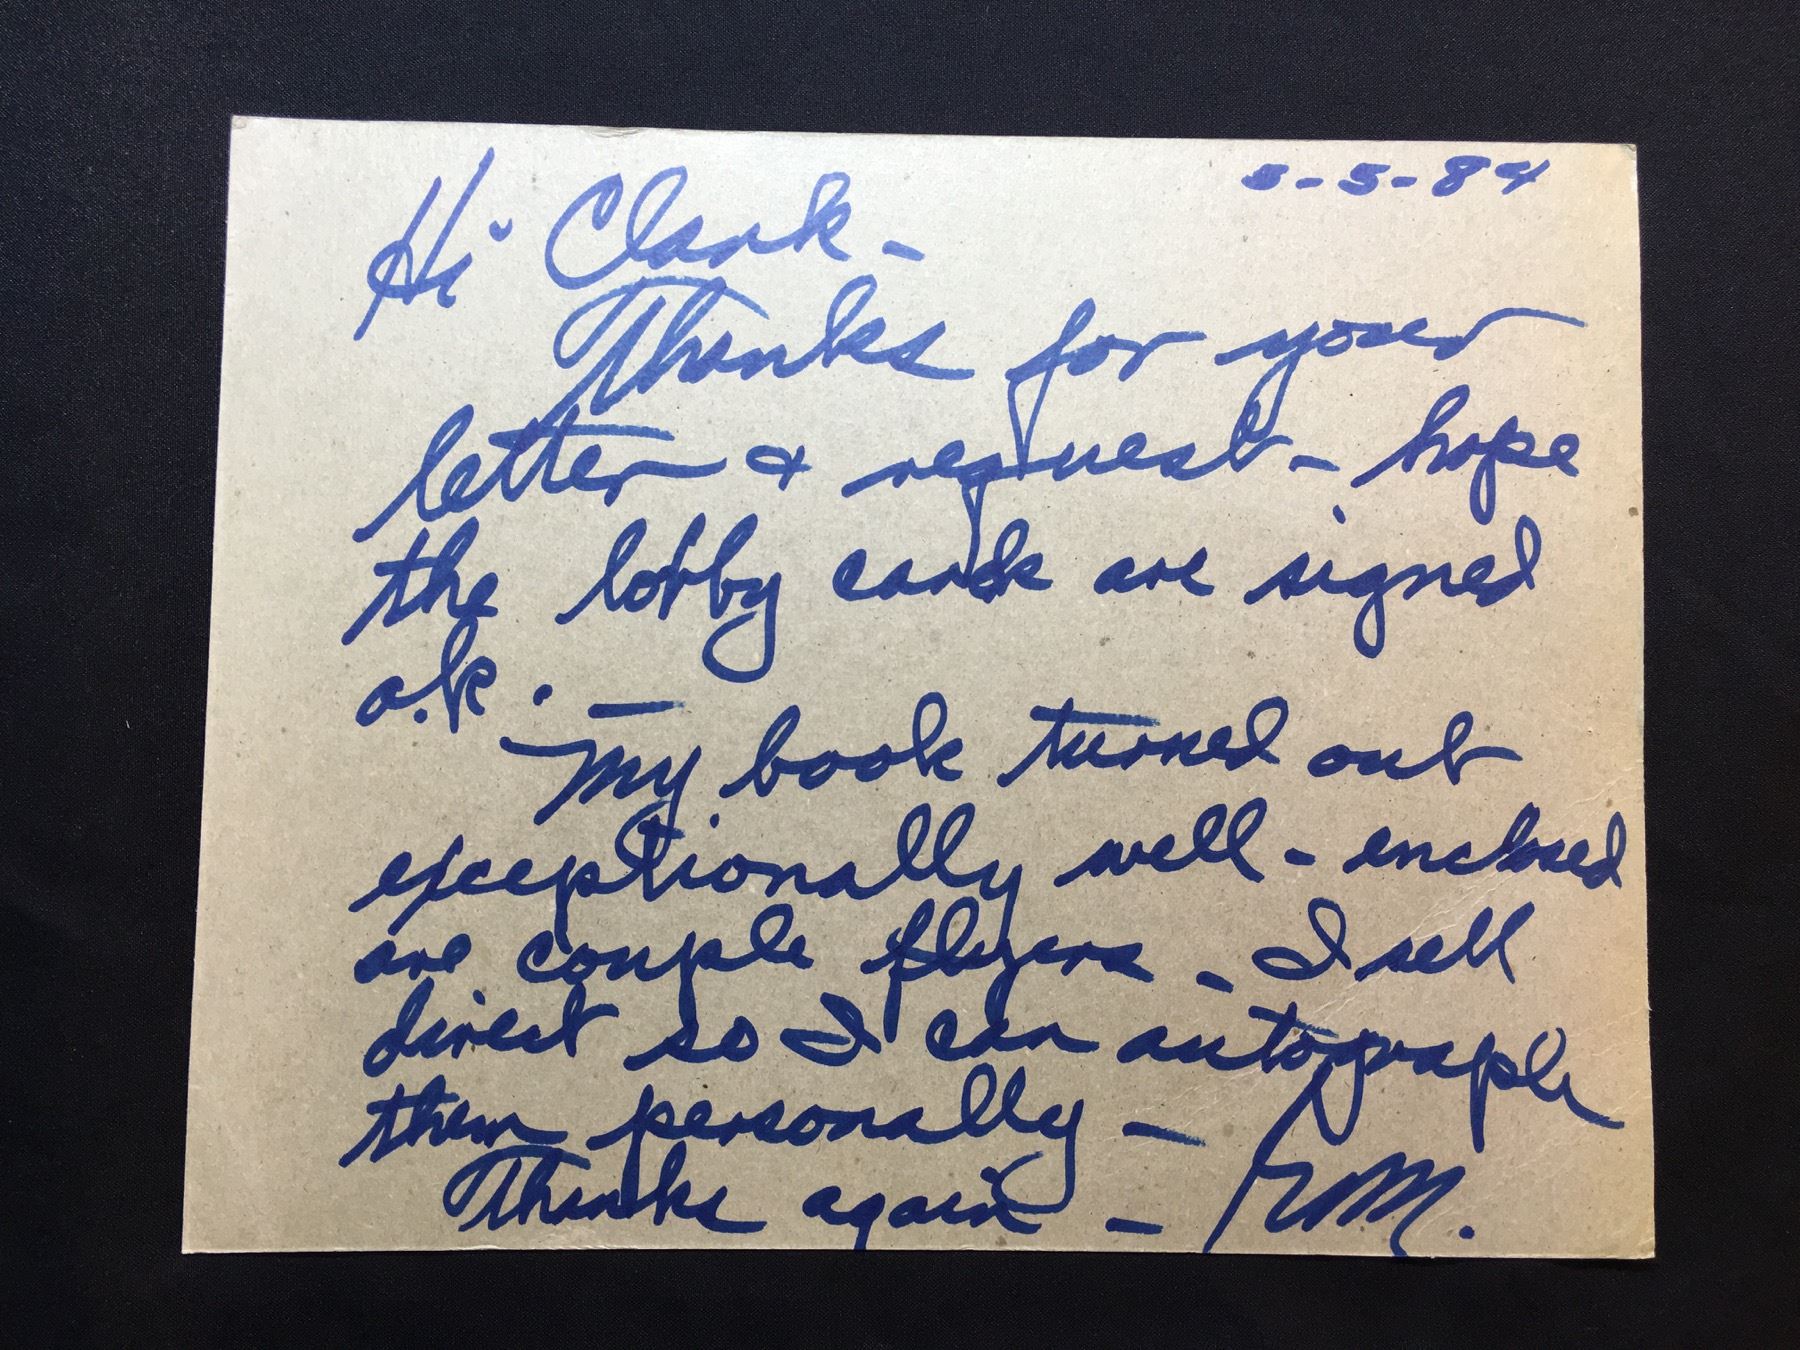 5-5-84
Hi Clark -
Thanks for your
letter & request - hope
the lobby cards are signed
o.k.
My book turned out
exceptionally well - enclosed
are couple flyers - I sell
direct so I can autograph
them personally -
Thanks again -